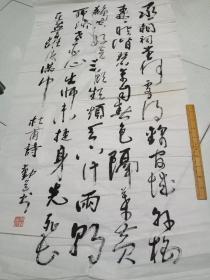 丞相祠堂何處尋錦官城外柏
森森映階碧草自春色隔葉黃
鸝空好音三顧頻煩天下計兩朝
開濟老臣心出師未捷身先死長
使英雄淚滿巾
杜甫詩